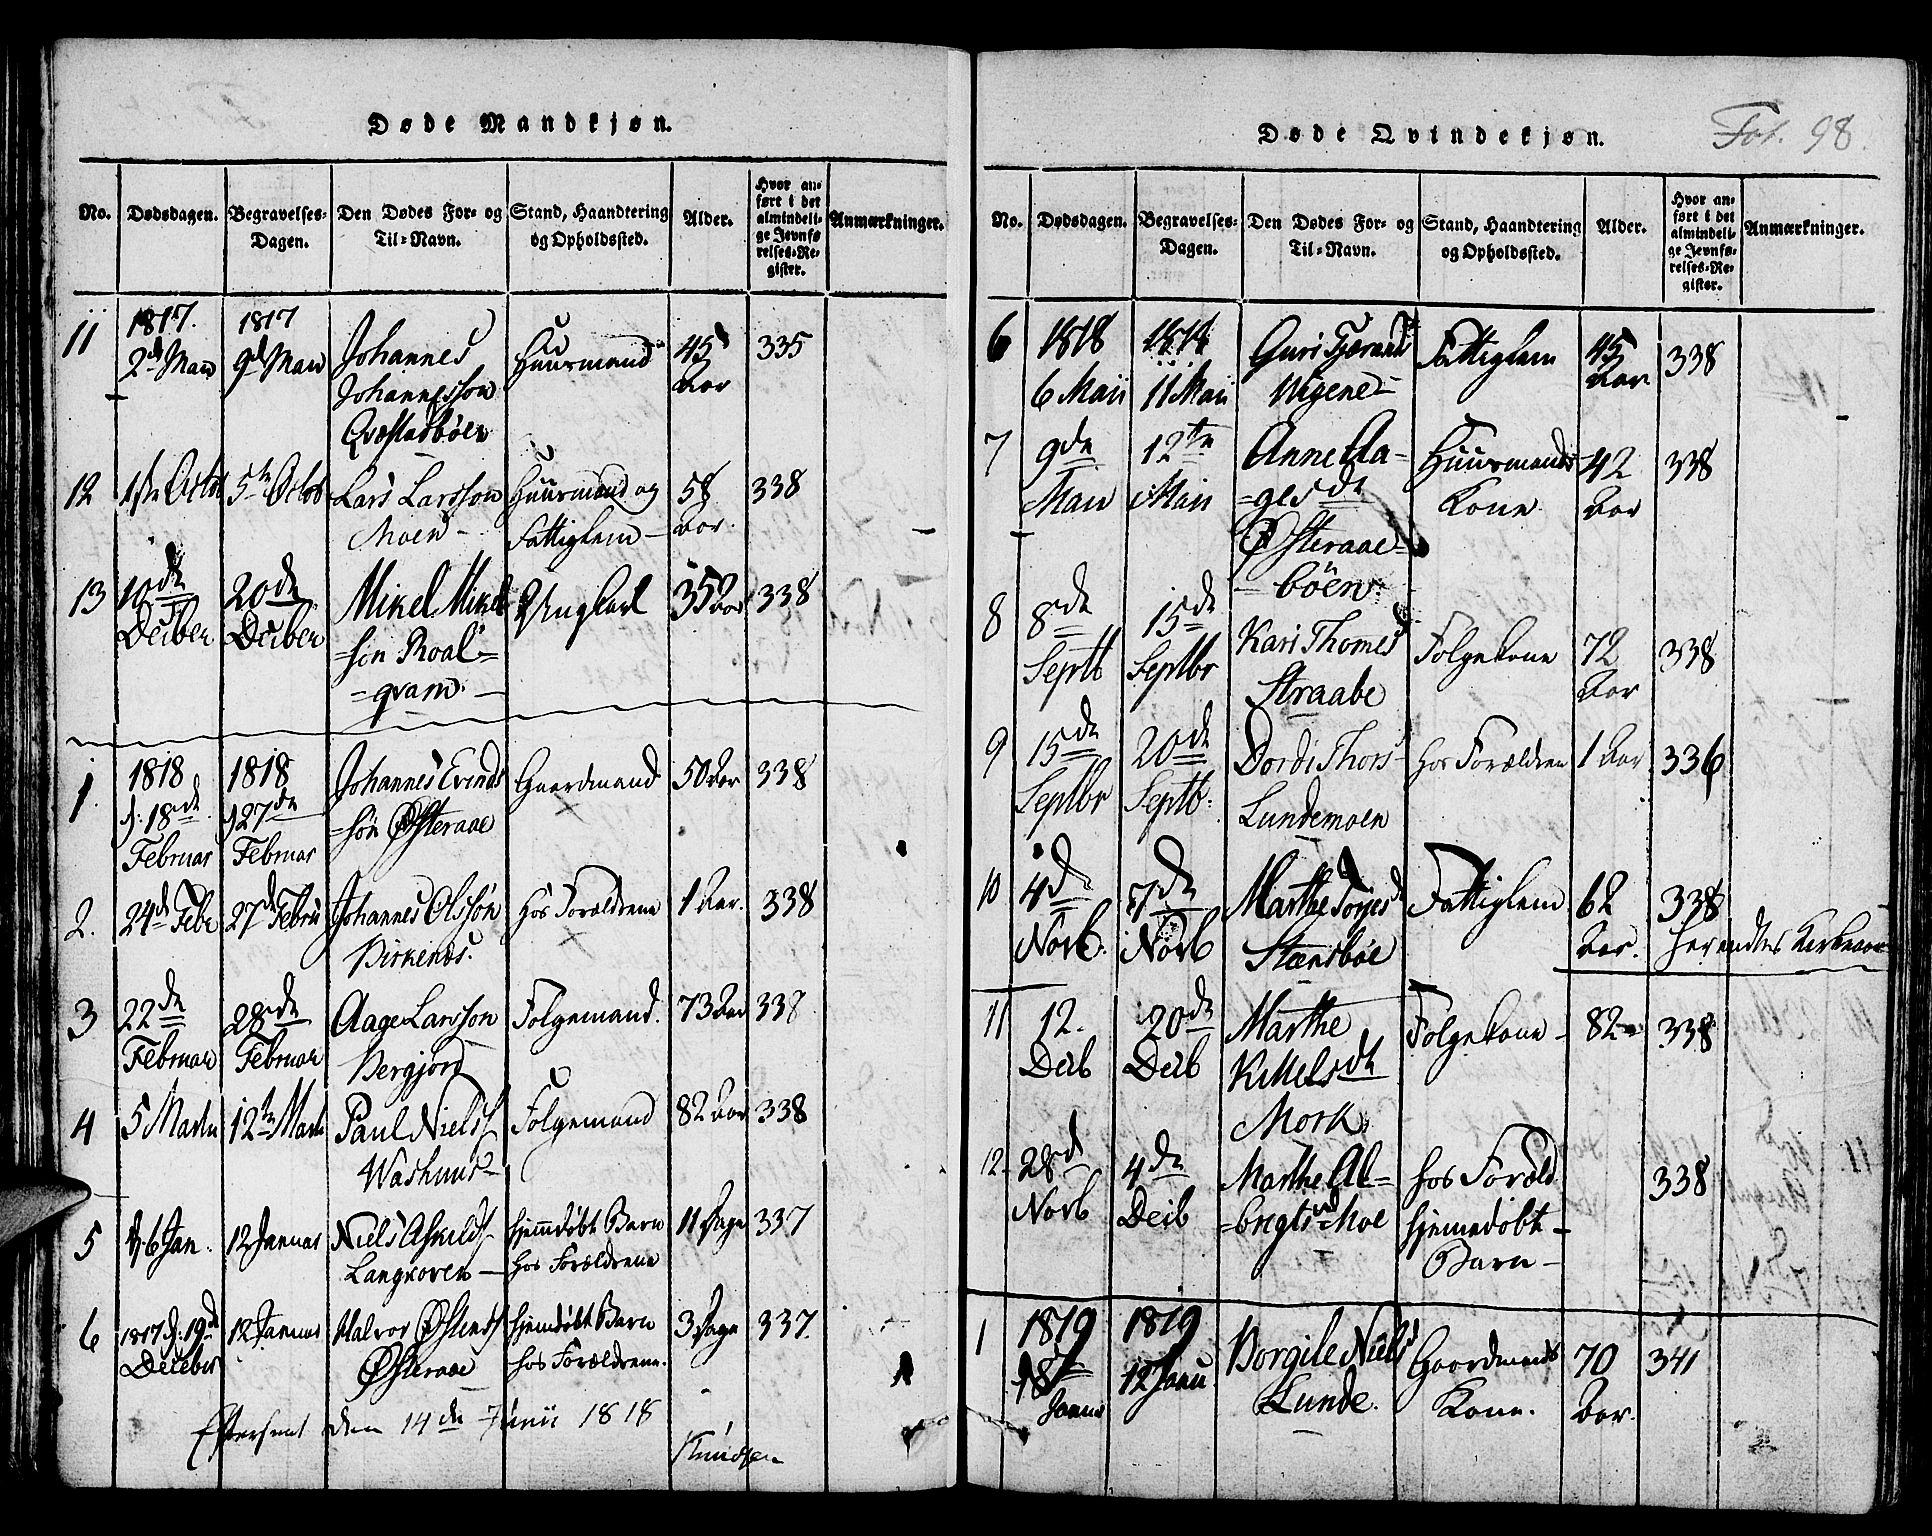 Døde Mandkjøn.
No. Dødsdagen. Begravelses-Dagen. Den Dødes For- og Til-Navn. Stand, Haandtering og Opholdssted. Alder. Hvor anført i det almindelige Jevnførelses-Register. Anmærkninger.
11 1817. 1817 Johannes Huusmand 45 335
2d Maii 9d Maii Johannesson Aar
Qvæstadbøen
12 1ste Octob 5te Octob Lars Larsson Huusmand og 58 338
Moen Fattiglem Aar.
13 10de 20de Mikel Mikel Ungkarl 35 Aar 338
Decber Decber =søn Roal=
=qvam.
1 1818 1818 Johannes Evinds Gaardmand 50 Aar 338
d. 18de d 27de =søn Østeraae
Februar Februar
2. 24d Febr 27de Februar Johannes Olssøn hos Forældrene 1 Aar. 338
Birkenes.
3 22de 28de Aage Larsson Folgemand. 73 Aar 338
Februar Februar Bergjord
4 5 Marti 12te Marti Paul Niels Folgemand 82 Aar 338
Washuus
5 d. 6 Jan. 12 Januar Niels Askilds hjemdøbt Barn 11 Dage 337
Langkoven hos Forældrene
6 1817 d. 19de 12 Januar Halvor Østens hjemdøbt Barn 3 Dage 337.
Decber Østeraae hos Forældrene.
Efterseet den 14de Junii 1818
Knudsen
Fol. 98.
Døde Qvindekjøn.
No. Dødsdagen. Begravelses-Dagen. Den Dødes For- og Til-Navn. Stand, Haandtering og Opholdssted. Alder. Hvor anført i det almindelige Jevnførelses-Register. Anmærkninger.
6 1818 1818 Guri Tjerand Fattiglem 45 338
6 Maii 11 Maii Vigene Aar
7 9de 12te Anne Aa= Huusmands 42 338
Maii Maii =gesdtr Kone Aar
Østeraae=
bøen.
8 8de 15de Kari Thomes Folgekone 72 338
Septb Septbr Straabe Aar
9 15de 20de Dordi Thors hos Forældrene 1 Aar 336
Septbr Septb. Lundemoen
10 4de 7de Marthe Torjes Fattiglem 62 338
Novb. Novb Stensbøe Aar.
11 12. 20de Marthe Folgekone 82 338
Decb Decb Kittelsdtr
Mork
12. 28d 4de Marthe Al= hos Foræld 338
Novb Decb =brigts Moe hjemedøbt
Barn
1 1819 1819 Borgile Niels Gaardmands 70 341
Janu 12 Janu. Lunde. Kone. Aar.